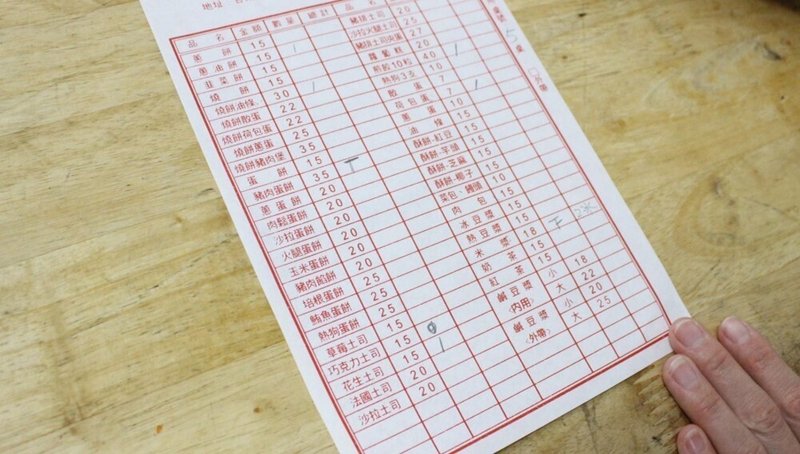 地址
品名 金額 數量 總計 品名
蔥餅 15 1 豬排土司 20
蔥油餅 15 沙拉火腿土司 25
韭菜餅 15 豬排土司夾蛋 27
燒餅 15 1 蘿蔔糕 20
燒餅油條 30 煎餃10粒 40 1
燒餅散蛋 22 熱狗3支 10
燒餅荷包蛋 22 散蛋 7
燒餅蔥蛋 25 荷包蛋 7 1
燒餅豬肉堡 35 蔥蛋 10
蛋餅 15 油條 15
豬肉蛋餅 35 酥餅-紅豆 15
蔥蛋餅 20 酥餅-芋頭 15
肉鬆蛋餅 20 酥餅-芝麻 15
沙拉蛋餅 20 酥餅-椰子 15
火腿蛋餅 20 菜包、饅頭 10
玉米蛋餅 20 肉包 15
豬肉餡餅 20 冰豆漿 15
培根蛋餅 25 熱豆漿 15
鮪魚蛋餅 25 米漿 18
熱狗蛋餅 25 奶茶 15
草莓土司 15 紅茶 15
巧克力土司 15 鹹豆漿 小 18
花生土司 15 1 (內用) 大 22
法國土司 20 鹹豆漿 小 20
沙拉土司 20 (外帶) 大 25
桌號 5 桌 外帶